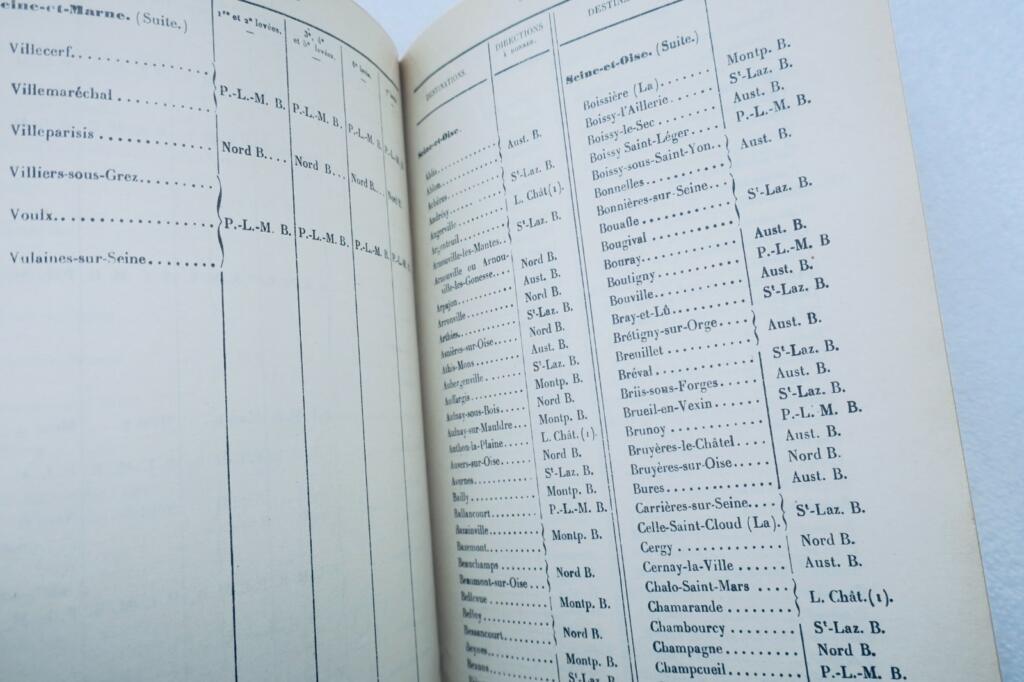 eine-et-Marne. (Suite.)
1re et 2e levées.
3e, 4e et 5e levées.
Villecerf
Villemaréchal
P.-L.-M. B. P.-L.-M. B. P.-L.-M.
Villeparisis
Nord B. Nord B. Nord B.
Villiers-sous-Grez
Voulx
P.-L.-M. B. P.-L.-M. B. P.-L.-M.
Vulaines-sur-Seine
DESTINATIONS
DIRECTIONS A DONNER.
Seine-et-Oise.
Ablis
Ablon
Aust. B.
Ableiges
Andrésy
St-Laz. B.
Angerville
L. Chât(1).
Argenteuil
Arnouville-les-Mantes
St-Laz. B.
Arnouville ou Arnouville-les-Gonesse
Nord B.
Arpajon
Aust. B.
Arronville
Nord B.
Arthies
St-Laz. B.
Asnières-sur-Oise
Nord B.
Athis-Mons
Aust. B.
Aubergenville
St-Laz. B.
Auffargis
Montp. B.
Aulnay-sous-Bois
Nord B.
Aulnay-sur-Mauldre
Montp. B.
Authon-la-Plaine
L. Chât.(1).
Auvers-sur-Oise
Nord B.
Avernes
St-Laz. B.
Bailly
Montp. B.
Ballancourt
P.-L.-M. B.
Bazainville
Bazemont
Montp. B.
Beauchamps
Beaumont-sur-Oise
Nord B.
Bellevue
Montp. B.
Belloy
Bessancourt
Nord B.
Beynes
Montp. B.
St-Laz. B.
Seine-et-Oise. (Suite.)
Boissière (La)
Montp. B.
Boissy-l'Aillerie
St-Laz. B.
Boissy-le-Sec
Aust. B.
Boissy Saint-Léger
P.-L.-M. B.
Boissy-sous-Saint-Yon
Bonnelles
Aust. B.
Bonnières-sur-Seine
Bouafle
Bougival
St-Laz. B.
Bouray
Aust. B.
Boutigny
P.-L.-M. B
Bouville
Aust. B.
Bray-et-Lû
St-Laz. B.
Brétigny-sur-Orge
Breuillet
Aust. B.
Bréval
St-Laz. B.
Briis-sous-Forges
Aust. B.
Brueil-en-Vexin
St-Laz. B.
Brunoy
P.-L. M. B.
Bruyères-le-Châtel
Aust. B.
Bruyères-sur-Oise
Nord B.
Bures
Aust. B.
Carrières-sur-Seine
Celle-Saint-Cloud (La)
St-Laz. B.
Cergy
Nord B.
Cernay-la-Ville
Aust. B.
Chalo-Saint-Mars
Chamarande
L. Chât.(1).
Chambourcy
St-Laz. B.
Champagne
Nord B.
Champcueil
P.-L.-M. B.